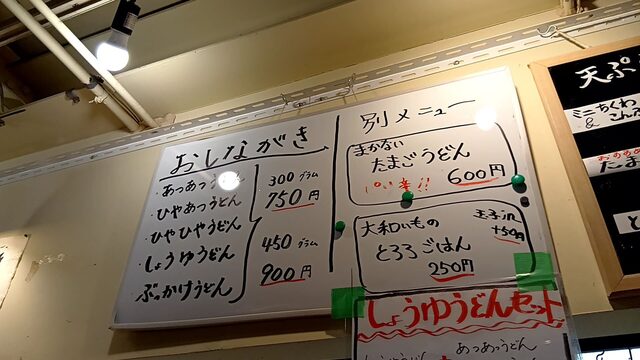 おしながき
・あつあつうどん
・ひやあつうどん
・ひやひやうどん
・しょうゆうどん
・ぶっかけうどん
300グラム
750円
450グラム
900円
別メニュー
まかない
たまごうどん
600円
大和いもの
とろろごはん
250円
玉子in
+50円
しょうゆうどんセット
あつあつうどん
天ぷ
ミニちくわ
&こん